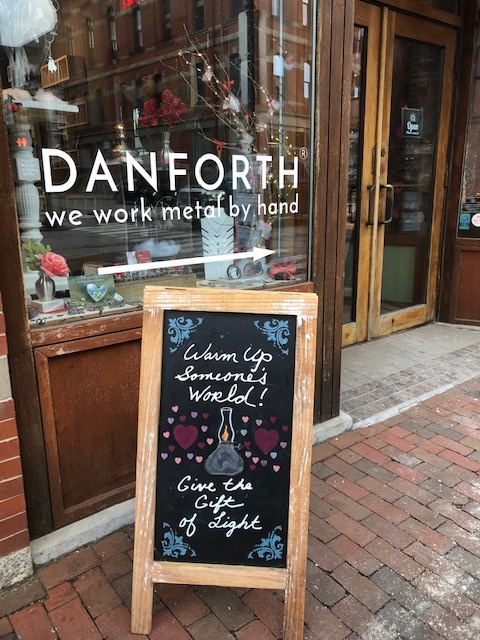 DANFORTH®
we work metal by hand
Open
Warm Up
Someone's
World!
Give the
Gift
of Light